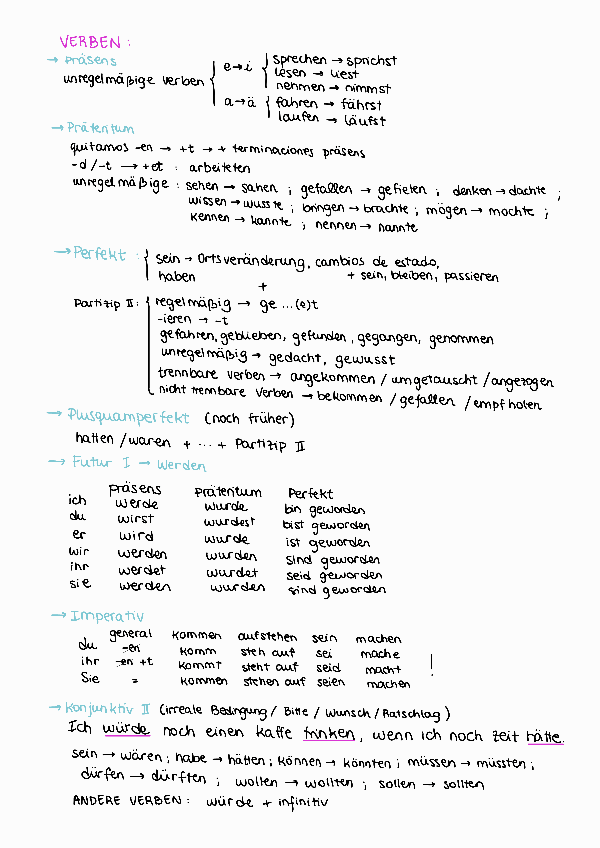 VERBEN :
→ Präsens
unregelmäßige verben { e→i { sprechen → sprichst
lesen → liest
nehmen → nimmst
a→ä { fahren → fährst
laufen → läufst
→ Präteritum
quitamos -en → +t → + terminaciones präsens
-d /-t → +et : arbeiteten
unregelmäßige : sehen → sahen ; gefallen → gefielen ; denken → dachte ;
wissen → wusste ; bringen → brachte ; mögen → mochte ;
kennen → kannte ; nennen → nannte
→ Perfekt : { sein → Ortsveränderung, cambios de estado,
haben + sein, bleiben, passieren
+
Partizip II : { regelmäßig → ge ...(e)t
-ieren → -t
gefahren, geblieben, gefunden, gegangen, genommen
unregelmäßig → gedacht, gewusst
trennbare verben → angekommen / umgetauscht / angezogen
nicht trennbare verben → bekommen / gefallen / empfholen
→ Plusquamperfekt (noch früher)
hatten / waren + ... + Partizip II
→ Futur I → werden
präsens präteritum Perfekt
ich werde wurde bin geworden
du wirst wurdest bist geworden
er wird wurde ist geworden
wir werden wurden sind geworden
ihr werdet wurdet seid geworden
sie werden wurden sind geworden
→ Imperativ
general kommen aufstehen sein machen
du -en komm steh auf sei mache
ihr -en +t kommt steht auf seid macht !
Sie = kommen stehen auf seien machen
→ Konjunktiv II (irreale Bedingung / Bitte / Wunsch / Ratschlag)
Ich würde noch einen kaffe trinken, wenn ich noch zeit hätte.
sein → wären ; habe → hätten ; können → könnten ; müssen → müssten ;
dürfen → dürften ; wollen → wollten ; sollen → sollten
ANDERE VERBEN : würde + infinitiv